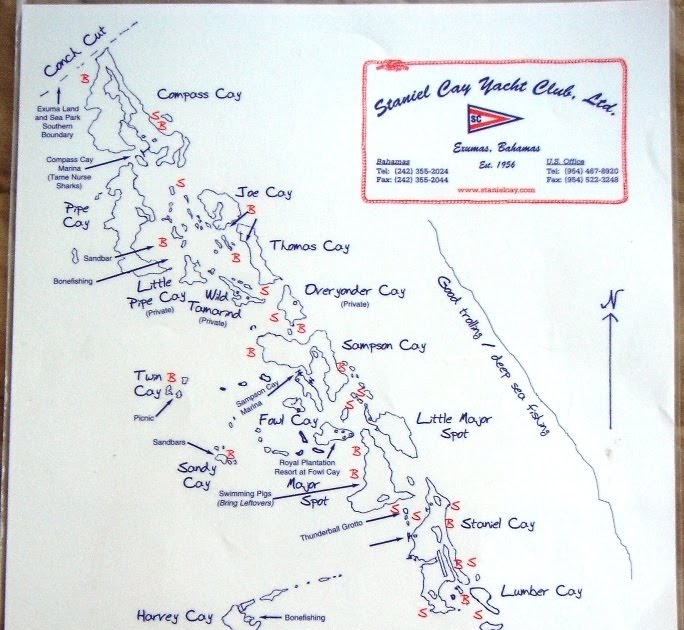 Conch Cut
B
Exuma Land
and Sea Park
Southern
Boundary
Compass Cay
S
B
Compass Cay
Marina
(Tame Nurse
Sharks)
Staniel Cay Yacht Club, Ltd.
SC
Exumas, Bahamas
Est. 1956
Bahamas
Tel: (242) 355-2024
Fax: (242) 355-2044
U.S. Office
Tel: (954) 467-8920
Fax: (954) 522-3248
www.stanielcay.com
S
Joe Cay
B
Pipe
Cay
B
Thomas Cay
B
Sandbar
Bonefishing
Little
Pipe Cay
(Private)
Wild
Tamarind
(Private)
S
Overyonder Cay
(Private)
S
B
Good trolling / deep sea fishing
N
B
Sampson Cay
B
Twin B
Cay
Picnic
Sampson Cay
Marina
S
S
Fowl Cay
Little Major
Spot
Sandbars
B
Sandy
Cay
Royal Plantation
Resort at Fowl Cay
B
B
Swimming Pigs
(Bring Leftovers)
Major
Spot
S
S
S
Thunderball Grotto
B
Staniel Cay
B
S
Lumber Cay
B
S
S
Harvey Cay
Bonefishing